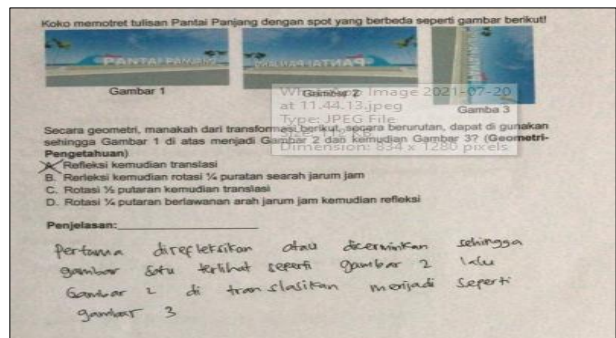 Koko memotret tulisan Pantai Panjang dengan spot yang berbeda seperti gambar berikut!
PANTAI PANJANG
Gambar 1
Gambar 2
Gamba 3
Image 2021-07-20
at 11.44.13.jpeg
Type: JPEG File
Dimension: 834 x 1280 pixels
Secara geometri, manakah dari transformasi berikut, secara berurutan, dapat di gunakan
sehingga Gambar 1 di atas menjadi Gambar 2 dan kemudian Gambar 3? (Geometri-
Pengetahuan)
A. Refleksi kemudian translasi
B. Rerleksi kemudian rotasi ¼ puratan searah jarum jam
C. Rotasi ½ putaran kemudian translasi
D. Rotasi ¼ putaran berlawanan arah jarum jam kemudian refleksi
Penjelasan:
Pertama direfleksikan atau dicerminkan sehingga
gambar satu terlihat seperti gambar 2 lalu
Gambar 2 di translasikan menjadi seperti
gambar 3